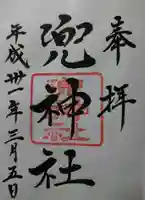 奉拝
兜神社
平成卅一年三月五日